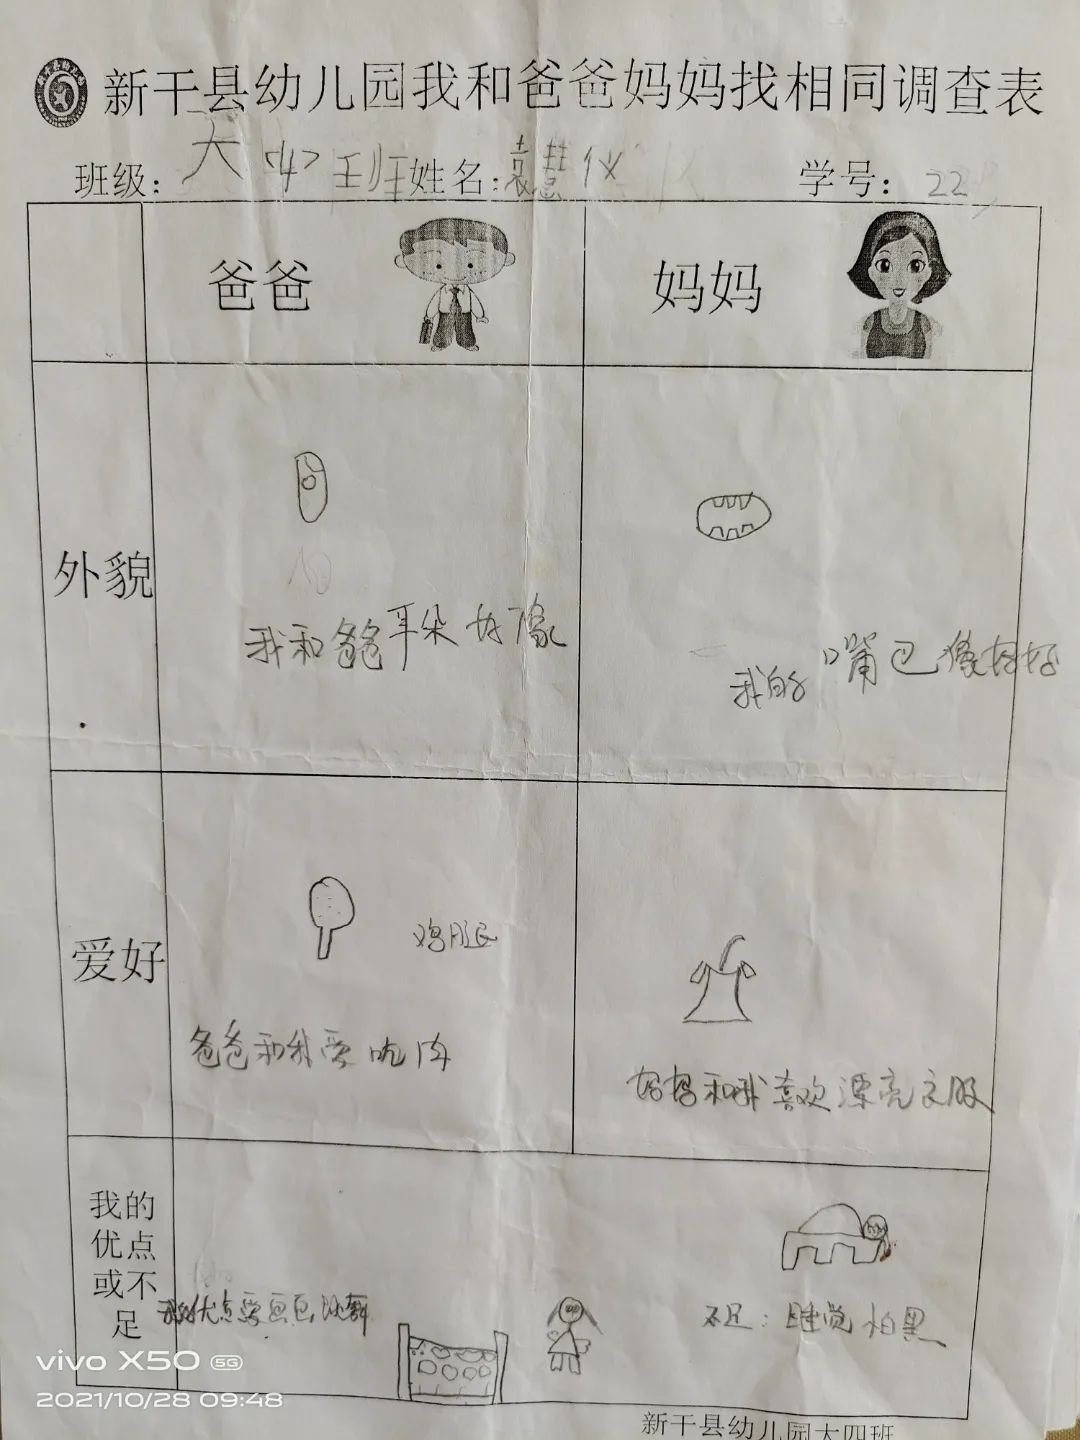 新干县幼儿园我和爸爸妈妈找相同调查表
班级：大(4)班 姓名：袁慧仪 学号：22号
爸爸 妈妈
外貌
我和爸爸耳朵好像
我的嘴巴像妈妈
爱好
鸡腿
爸爸和我爱吃肉
妈妈和我喜欢漂亮衣服
我的
优点
或不
足
我的优点爱画画，跳舞
不足：睡觉怕黑
vivo X50 5G
2021/10/28 09:48
新干县幼儿园大四班